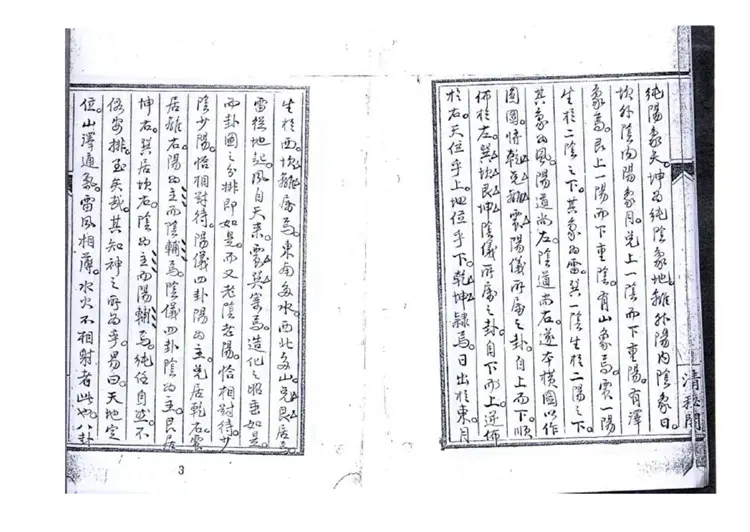 純陽象天。坤為純陰象地。離外陽內陰象日。
坎外陰內陽象月。兌上一陰而下重陽。有澤
象焉。艮上一陽而下重陰。有山象焉。震一陽
生於二陰之下。其象為雷。巽一陰生於二陽之下。
其象為風。陽道尚左。陰道尚右。遂本橫圖以作
圓圖。將乾兌離震陽儀所屬之卦。自上而下。順
佈於左。巽坎艮坤陰儀所屬之卦。自下而上。逆佈
於右。天位乎上。地位乎下。乾坤隸焉。日出於東。月
清秘閣
生於西。坎離居焉。東南多水。西北多山。兌艮居焉。
雷從地起。風自天來。震巽寓焉。造化之昭垂如是。
而卦圖之分排即如是。而又老陰老陽。恰相對待。少
陰少陽。恰相對待。陽儀四卦陽為主。兌居乾右。震
居離右。陽為主而陰輔焉。陰儀四卦陰為主。艮居
坤右。巽居坎右。陰為主而陽輔焉。純任自然。不
假安排。至矣哉。其知神之所為乎。易曰。天地定
位。山澤通氣。雷風相薄。水火不相射者此也。八卦
3